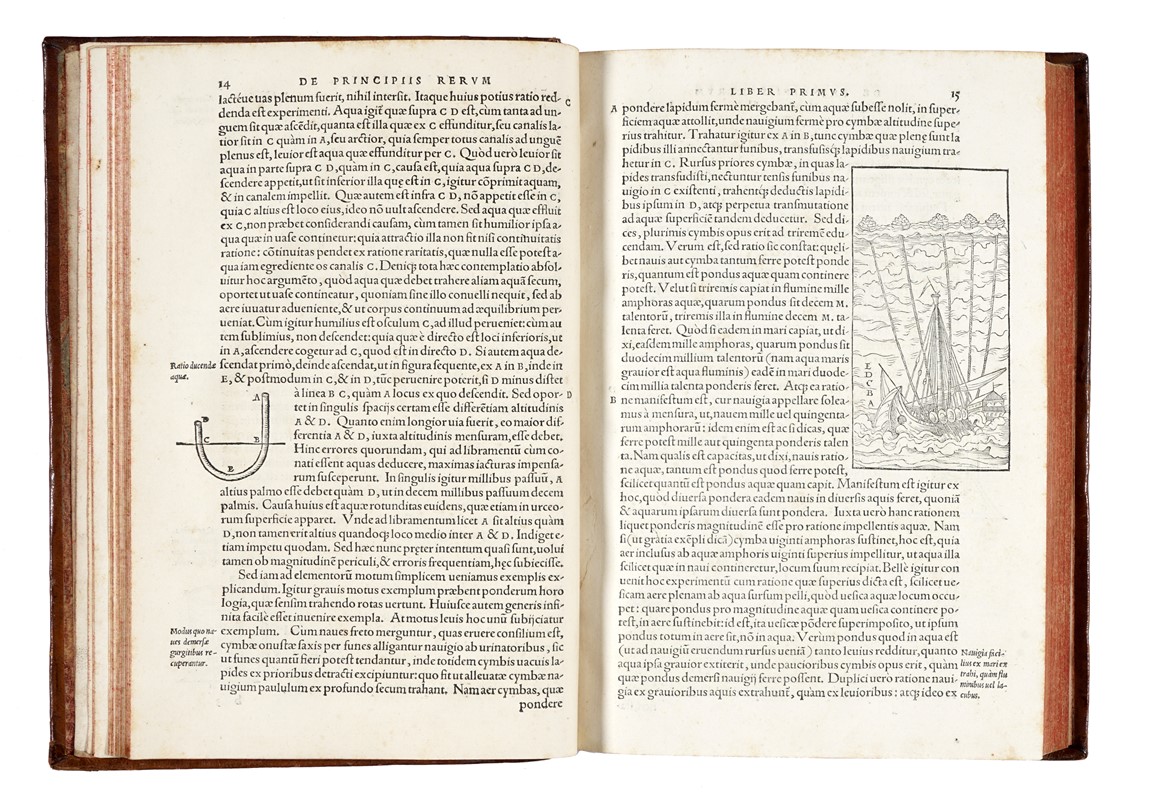 14
DE PRINCIPIIS RERVM
lactéue uas plenum fuerit, nihil intersit. Itaque huius potius ratio red-
C
denda est experimenti. Aqua igit quæ supra C D est, cùm tanta ad un-
guem sit quæ ascēdit, quanta est illa quæ ex C effunditur, seu canalis la-
tior sit in C quàm in A, seu arctior, quia semper totus canalis ad unguē
plenus est, leuior est aqua quæ effunditur per C. Quòd uerò leuior sit
aqua in parte supra C D, quàm in C, causa est, quia aqua supra C D, de-
scendere appetit, ut sit inferior illa quę est in C, igitur cōprimit aquam,
& in canalem impellit. Quæ autem est infra C D, nō appetit esse in C,
quia C altius est loco eius, ideo nō uult ascendere. Sed aqua quæ effluit
ex C, non præbet considerandi causam, cùm tamen sit humilior ipsa a-
qua quæ in uase continetur: quia attractio illa non fit nisi continuitatis
ratione: cōtinuitas pendet ex ratione raritatis, quæ nulla esse potest a-
qua iam egrediente os canalis C. Deniq; tota hæc contemplatio absol-
uitur hoc argumēto, quòd aqua quæ debet trahere aliam aquā secum,
oportet ut uase contineatur, quoniam sine illo conuelli nequit, sed ab
aere iuuatur adueniente, & ut corpus continuum ad æquilibrium per-
ueniat. Cùm igitur humilius est osculum C, ad illud perueniet: cùm au
tem sublimius, non descendet: quia quæ è directo est loci inferioris, ut
in A, ascendere cogetur ad C, quod est in directo D. Si autem aqua de-
Ratio ducendæ
aquæ.
scendat primò, deinde ascendat, ut in figura sequente, ex A in B, inde in
E, & postmodum in C, & in D, tūc peruenire poterit, si D minus distet
à linea B C, quàm A locus ex quo descendit. Sed opor-
D
tet in singulis spacijs certam esse differētiam altitudinis
A & D. Quanto enim longior uia fuerit, eo maior dif-
ferentia A & D, iuxta altitudinis mensuram, esse debet.
Hinc errores quorundam, qui ad libramentū cùm co-
nati essent aquas deducere, maximas iacturas impensa-
rum susceperunt. In singulis igitur millibus passuū, A
A
D
C
B
E
altius palmo esse debet quàm D, ut in decem millibus passuum decem
palmis. Causa huius est aquæ rotunditas euidens, quæ etiam in urceo-
rum superficie apparet. Vnde ad libramentum licet A sit altius quàm
D, non tamen erit altius quandoq; loco medio inter A & D. Indiget e-
tiam impetu quodam. Sed hæc nunc pręter intentum quasi sunt, uolui
tamen ob magnitudinē periculi, & erroris frequentiam, hęc subiecisse.
Sed iam ad elementorū motum simplicem ueniamus exemplis ex-
plicandum. Igitur grauis motus exemplum præbent ponderum horo
logia, quæ sensim trahendo rotas uertunt. Huiusce autem generis infi-
nita facilè esset inuenire exempla. At motus leuis hoc unū subijciatur
Modus quo na-
ues demersæ
gurgitibus re-
cuperantur.
exemplum. Cùm naues freto merguntur, quas eruere consilium est,
cymbæ onustæ saxis per funes alligantur nauigio ab urinatoribus, sic
ut funes quantū fieri potest tendantur, inde totidem cymbis uacuis la-
pides ex prioribus detracti excipiuntur: quo fit ut alleuatæ cymbæ na-
uigium paululum ex profundo secum trahant. Nam aer cymbas, quæ
pondere
LIBER PRIMVS.
15
A
pondere lapidum fermè mergebant, cùm aquæ subesse nolit, in super-
ficiem aquæ attollit, unde nauigium fermè pro cymbæ altitudine supe-
rius trahitur. Trahatur igitur ex A in B, tunc cymbæ quæ plenę sunt la
pidibus illi annectantur funibus, transfusisq; lapidibus nauigium tra-
hetur in C. Rursus priores cymbæ, in quas la-
pides transfudisti, nectuntur tensis funibus na-
uigio in C existenti, trahentq; deductis lapidi-
bus ipsum in D, atq; perpetua transmutatione
ad aquæ superficiē tandem deducetur. Sed di-
ces, plurimis cymbis opus erit ad triremē edu-
cendam. Verum est, sed ratio sic constat: quęli-
bet nauis aut cymba tantum ferre potest ponde
ris, quantum est pondus aquæ quam continere
potest. Velut si triremis capiat in flumine mille
amphoras aquæ, quarum pondus sit decem M.
talentorū, triremis illa in flumine decem M. ta-
lenta feret. Quòd si eadem in mari capiat, ut di-
xi, easdem mille amphoras, quarum pondus sit
duodecim millium talentorū (nam aqua maris
grauior est aqua fluminis) eadē in mari duode-
cim millia talenta ponderis feret. Atq; ea ratio-
B
ne manifestum est, cur nauigia appellare solea-
mus à mensura, ut, nauem mille uel quingenta-
rum amphorarū: idem enim est ac si dicas, quæ
ferre potest mille aut quingenta ponderis talen
ta. Nam qualis est capacitas, ut dixi, nauis ratio-
ne aquæ, tantum est pondus quod ferre potest,
E
D
C
B
A
scilicet quantū est pondus aquæ quam capit. Manifestum est igitur ex
hoc, quòd diuersa pondera eadem nauis in diuersis aquis feret, quoniā
& aquarum ipsarum diuersa sunt pondera. Iuxta uerò hanc rationem
liquet ponderis magnitudinē esse pro ratione impellentis aquæ. Nam
si (ut gratia exēpli dicā) cymba uiginti amphoras sustinet, hoc est, quia
aer inclusus ab aquæ amphoris uiginti superius impellitur, ut aqua illa
scilicet quæ in naui contineretur, locum suum recipiat. Bellè igitur con
uenit hoc experimentū cum ratione quæ superius dicta est, scilicet ue-
sicam aere plenam ab aqua sursum pelli, quòd uesica aquæ locum occu-
pet: quare pondus pro magnitudine aquæ quam uesica continere po-
test, in aere sustinebit: id est, ita uesicæ pōdere superimposito, ut ipsum
pondus totum in aere sit, nō in aqua. Verùm pondus quod in aqua est
(ut ad nauigiū eruendum rursus ueniā) tanto leuius redditur, quanto
aqua ipsa grauior extiterit, unde paucioribus cymbis opus erit, quàm
quæ pondus demersi nauigij ferre possent. Duplici uerò ratione naui-
gia ex grauioribus aquis extrahunt, quàm ex leuioribus: atq; ideo ex
Nauigia faci-
lius ex mari ex
trahi, quàm flu
minibus uel la-
cubus.